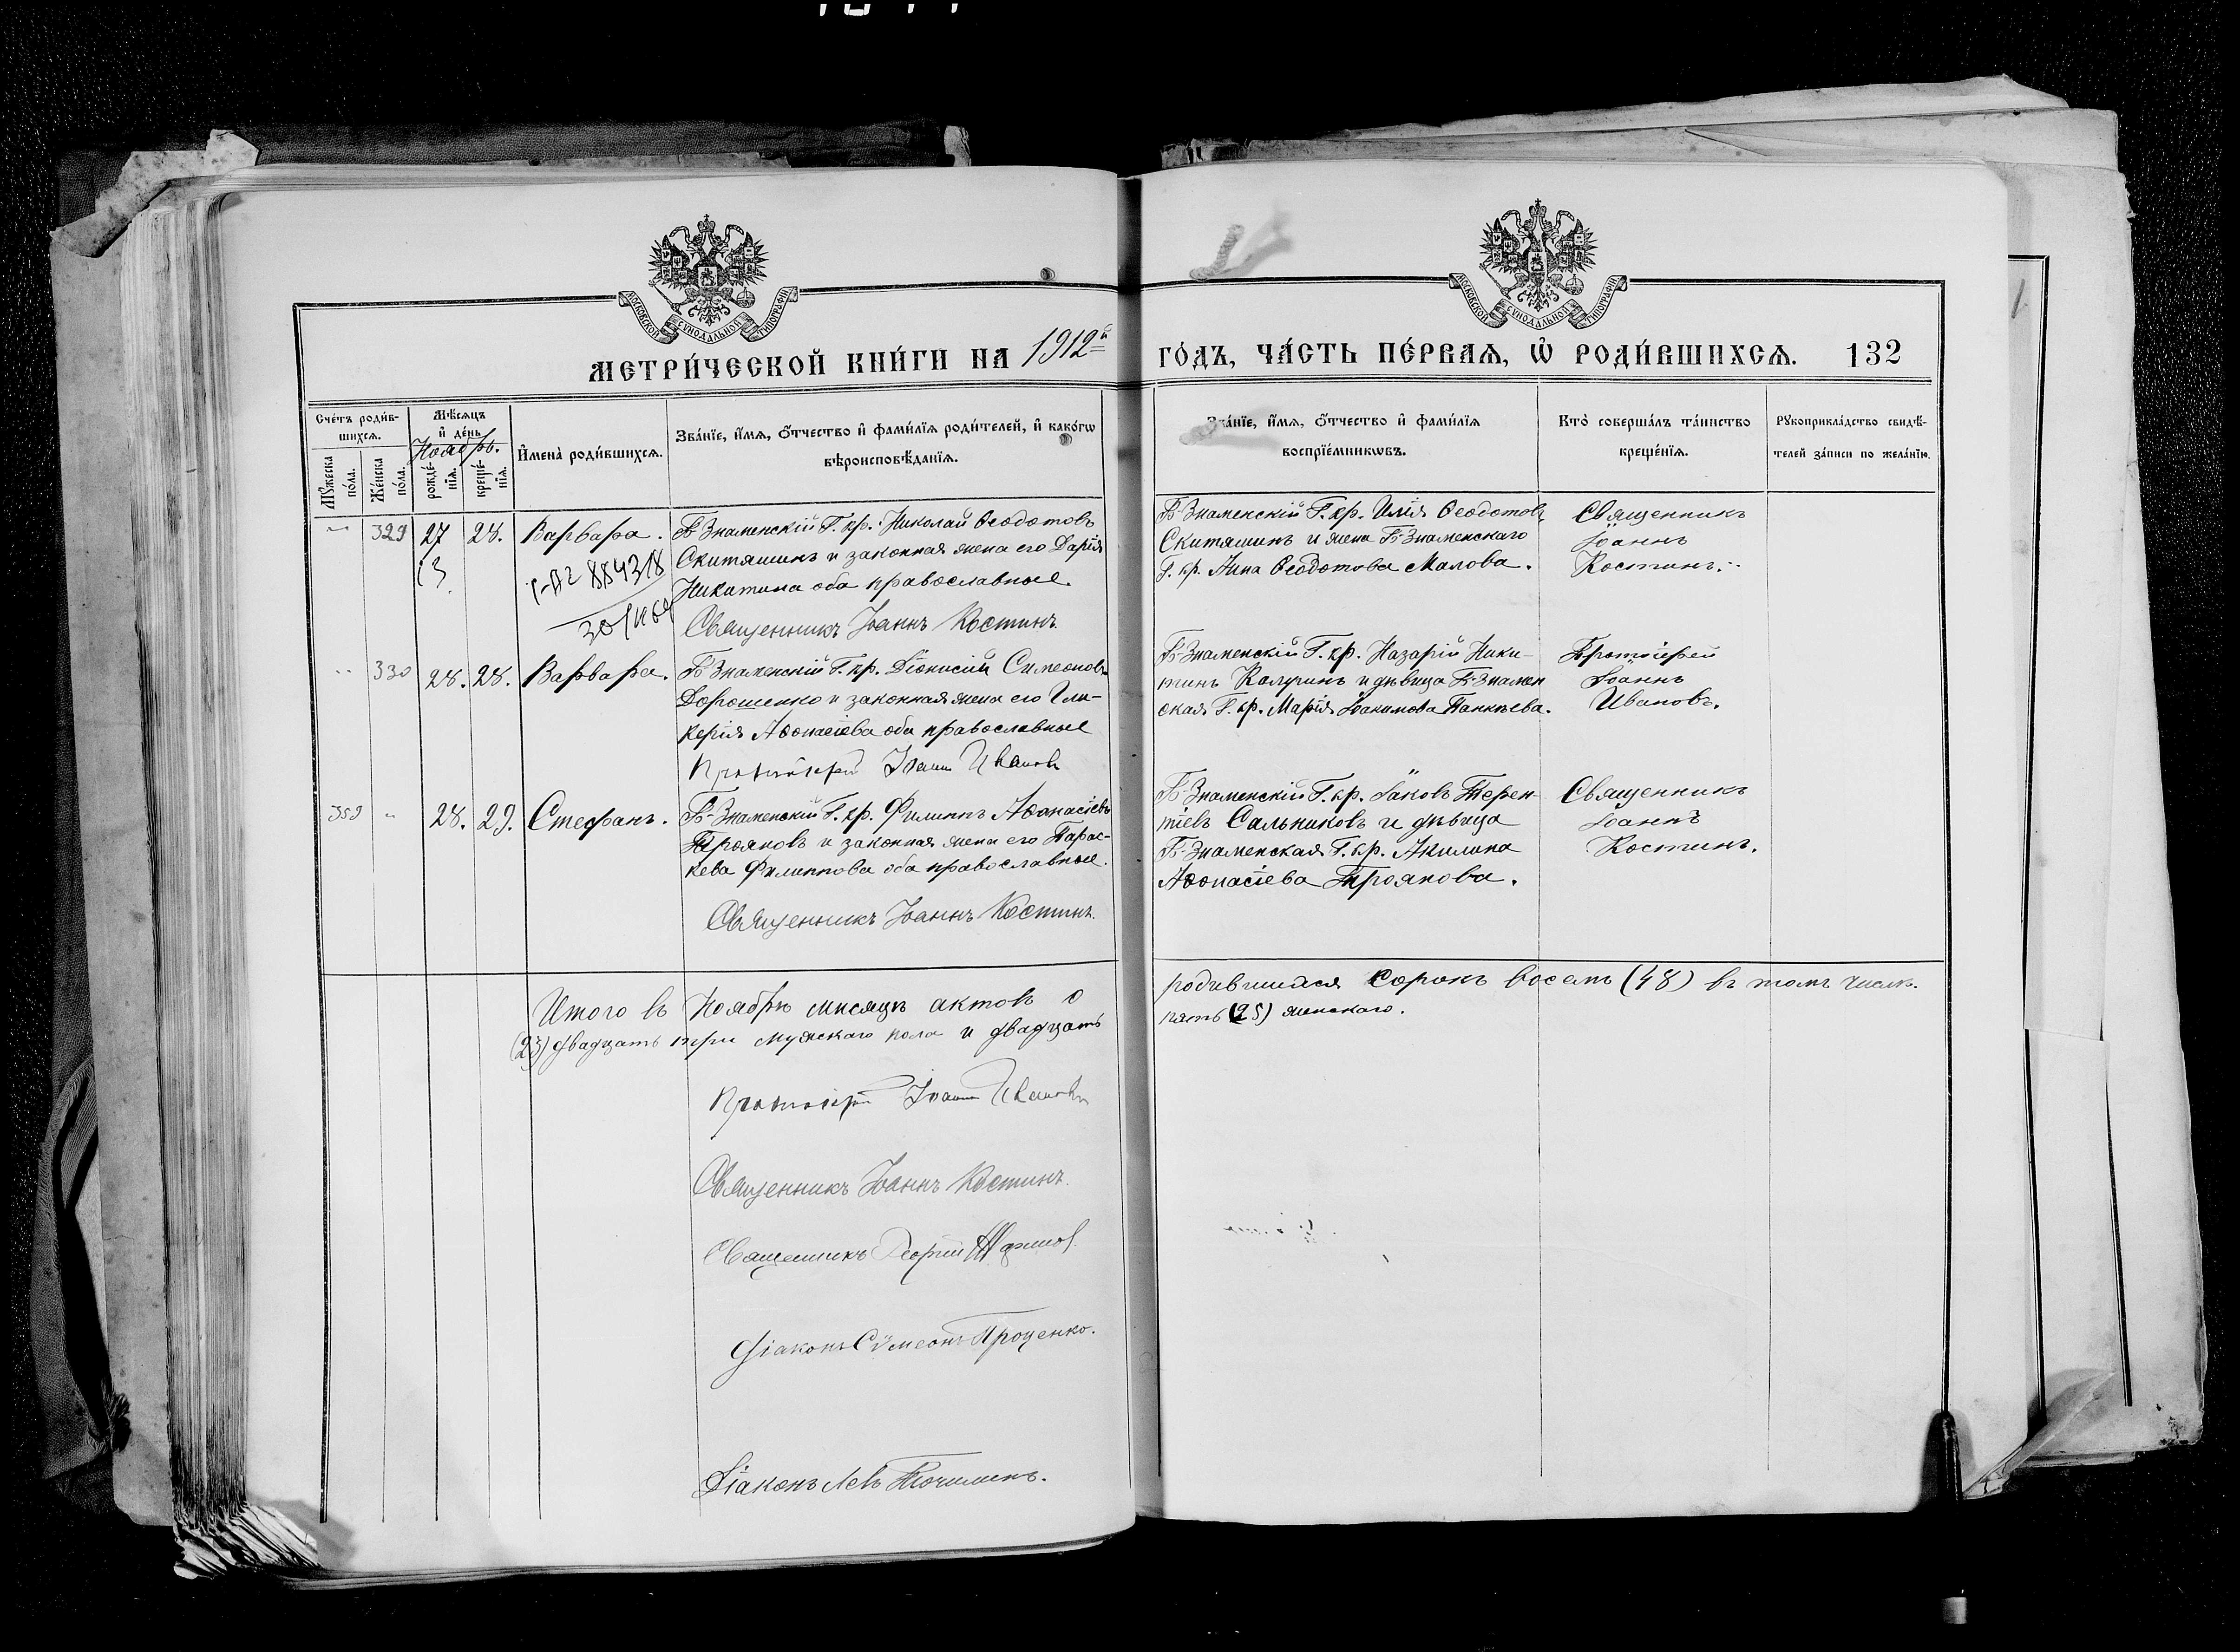 МОСКОВСКОЙ СѴНОДАЛЬНОЙ ТИПОГРАФІИ
МОСКОВСКОЙ СѴНОДАЛЬНОЙ ТИПОГРАФІИ
МЕТРИ́ЧЕСКОЙ КНИ́ГИ НА 1912й
ГО́ДЪ, ЧА́СТЬ ПЕ́РВАЯ, Ѡ҆ РОДИ́ВШИХСЯ. 132
Сче́тъ роди́в-
шихся.
Мꙋ́жеска по́ла.
Же́нска по́ла.
Мѣ́сяцъ и҆ де́нь
Ноябрь.
рожде́-нїя.
креще́-нїя.
И҆мена̀ роди́вшихся.
Зва́нїе, и҆́мя, ѻ҆́тчество и҆ фами́лїя роди́телей, и҆ како́гѡ
вѣроисповѣ́данїя.
Зва́нїе, и҆́мя, ѻ҆́тчество и҆ фами́лїя
воспрїе́мникѡвъ.
Кто̀ соверша́лъ та́инство
креще́нїя.
Рꙋкоприкла́дство свидѣ́-
телей за́писи по жела́нїю.
" 329 27 28. Варвара.
13
884318
Б-Знаменскій Г. кр. Николай Ѳеодотовъ
Скитяшинъ и законная жена его Дарія
Никитина оба православные.
Священникъ Іоаннъ Костинъ.
Б-Знаменскій Г. кр. Илія Ѳеодотовъ
Скитяшинъ и жена Б-Знаменскаго
Г. кр. Анна Ѳеодотова Малова.
Священникъ
Іоаннъ
Костинъ.
" 330 28. 28. Варвара.
Б-Знаменскій Г. кр. Діонисій Симеоновъ
Дорошенко и законная жена его Гли-
керія Аѳонасіева оба православные
Протоіерей Іоаннъ Ивановъ
Б-Знаменскій Г. кр. Назарій Ники-
тинъ Калгинъ и дѣвица Б-Знамен
ская Г. кр. Марія Іоакимова Панкѣева.
Протоіерей
Іоаннъ
Ивановъ.
359 " 28. 29. Стефанъ.
Б-Знаменскій Г. кр. Филиппъ Аѳонасіевъ
Трояновъ и законная жена его Парас-
кева Филиппова оба православные.
Священникъ Іоаннъ Костинъ.
Б-Знаменскій Г. кр. Іаковъ Терен-
тіевъ Сальниковъ и дѣвица
Б-Знаменская Г. кр. Акилина
Аѳонасіева Троянова.
Священникъ
Іоаннъ
Костинъ.
Итого въ Ноябрѣ мѣсяцѣ актовъ о
родившихся сорокъ восемь (48) въ томъ числѣ
(23) двадцать три мужскаго пола и двадцать
пять (25) женскаго.
Протоіерей Іоаннъ Ивановъ
Священникъ Іоаннъ Костинъ.
Священникъ Георгій
Діаконъ Сѵмеонъ Проценко.
Діаконъ Левъ